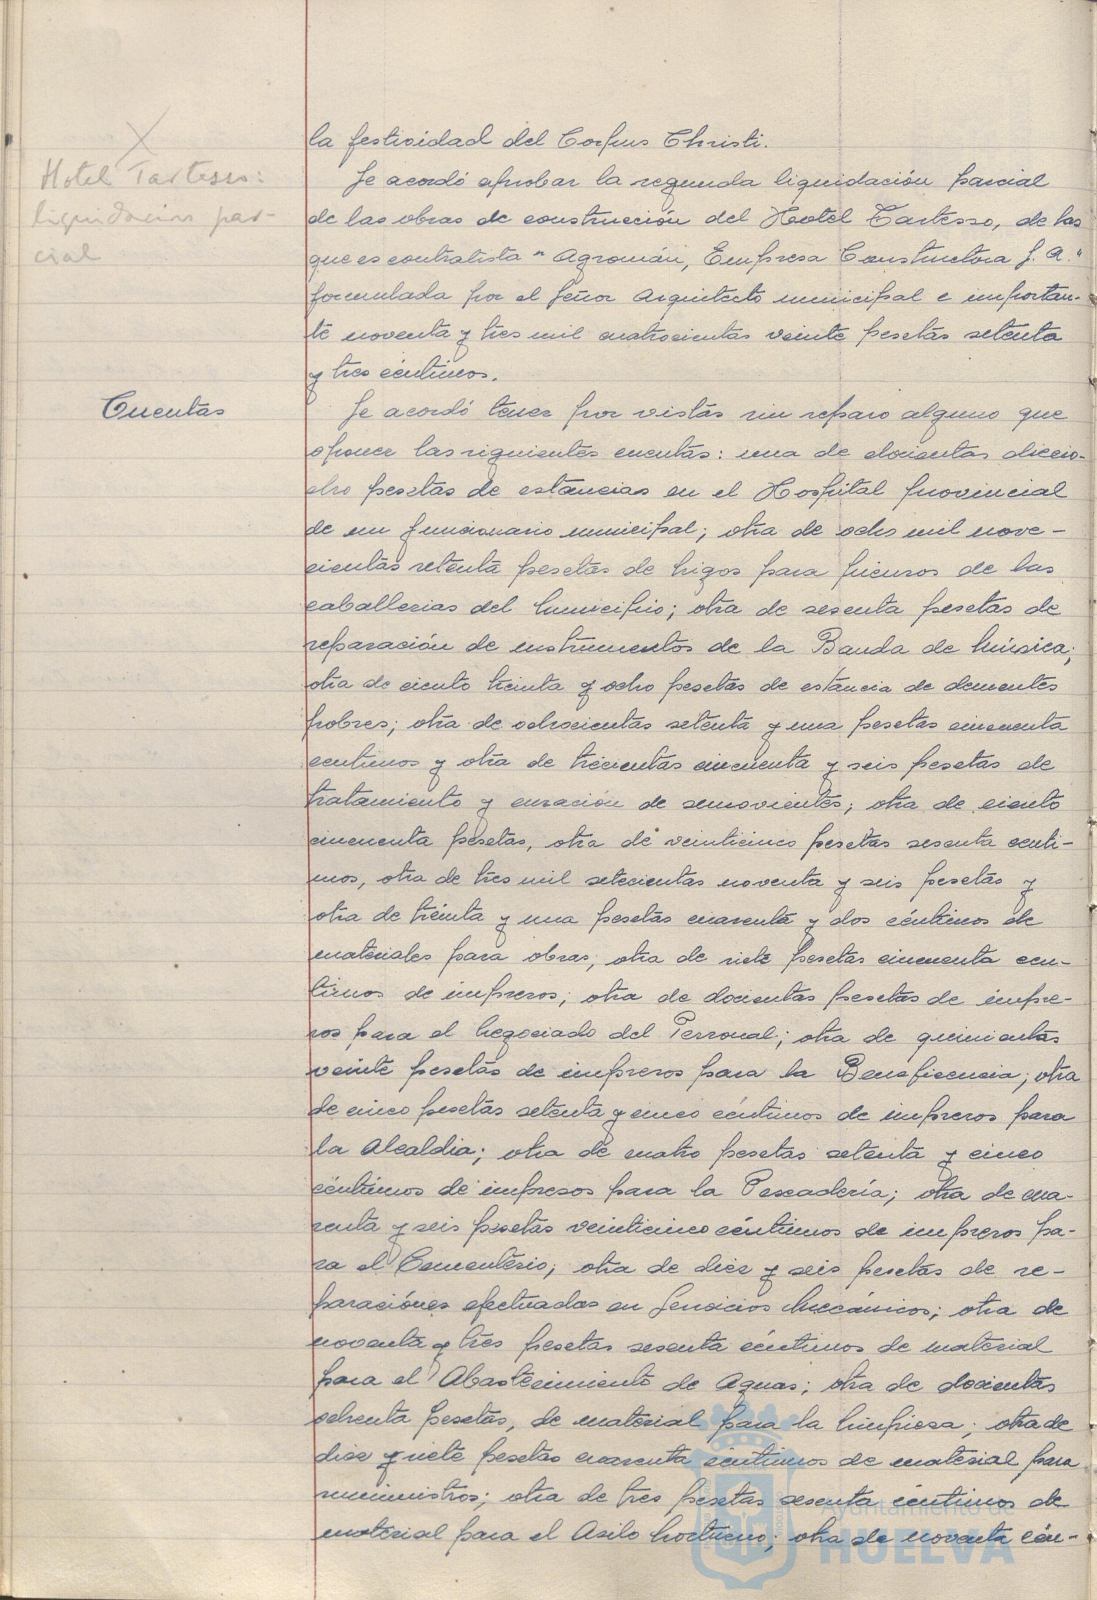 la festividad del Corpus Christi.
Hotel Tartesso:
liquidación par-
cial
Se acordó aprobar la segunda liquidación parcial
de las obras de construcción del Hotel Tartesso, de las
que es contratista "Agromán, Empresa Constructora S. A."
formulada por el Señor Arquitecto municipal e importan-
te noventa y tres mil cuatrocientas veinte pesetas setenta
y tres céntimos.
Cuentas
Se acordó tener por vistas sin reparo alguno que
oponer las siguientes cuentas: una de docientas diecio-
cho pesetas de estancias en el Hospital provincial
de un funcionario municipal; otra de ocho mil nove-
cientas setenta pesetas de higos para piensos de las
caballerias del Municipio; otra de sesenta pesetas de
reparación de instrumentos de la Banda de Música;
otra de ciento treinta y ocho pesetas de estancia de dementes
pobres; otra de ochocientas setenta y una pesetas cincuenta
centimos y otra de trecientas cincuenta y seis pesetas de
tratamiento y curación de semovientes; otra de ciento
cincuenta pesetas, otra de veinticinco pesetas sesenta centi-
mos, otra de tres mil setecientas noventa y seis pesetas y
otra de treinta y una pesetas cuarenta y dos céntimos de
materiales para obras; otra de siete pesetas cincuenta cen-
timos de impresos; otra de docientas pesetas de impre-
sos para el Negociado del Personal; otra de quinientas
veinte pesetas de impresos para la Beneficencia; otra
de cinco pesetas setenta y cinco céntimos de impresos para
la Alcaldia; otra de cuatro pesetas setenta y cinco
céntimos de impresos para la Pescadería; otra de cua-
renta y seis pesetas veinticinco céntimos de impresos pa-
ra el Cementerio; otra de diez y seis pesetas de re-
paraciónes efectuadas en Servicios Mecánicos; otra de
noventa y tres pesetas sesenta céntimos de material
para el Abastecimiento de Aguas; otra de docientas
ochenta pesetas, de material para la limpiesa; otra de
diez y siete pesetas cuarenta céntimos de material para
suministros; otra de tres pesetas sesenta céntimos de
material para el Asilo Nocturno; otra de noventa cén-
Ayuntamiento de
HUELVA